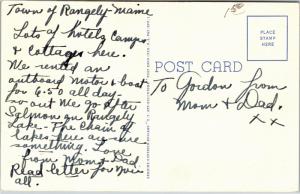 Town of Rangely Maine
Lots of hotels Camps
& Cottages here.
We rented an
outboard motor & boat
for 6.50 all day-
so out we go after
Sylmon on Rangely
Lake - The chain of
lakes here are
something. Love
from Mom & Dad
Read letter for
all.
1.50
PLACE
STAMP
HERE
POST CARD
To Gordon from
Mom & Dad.
x x